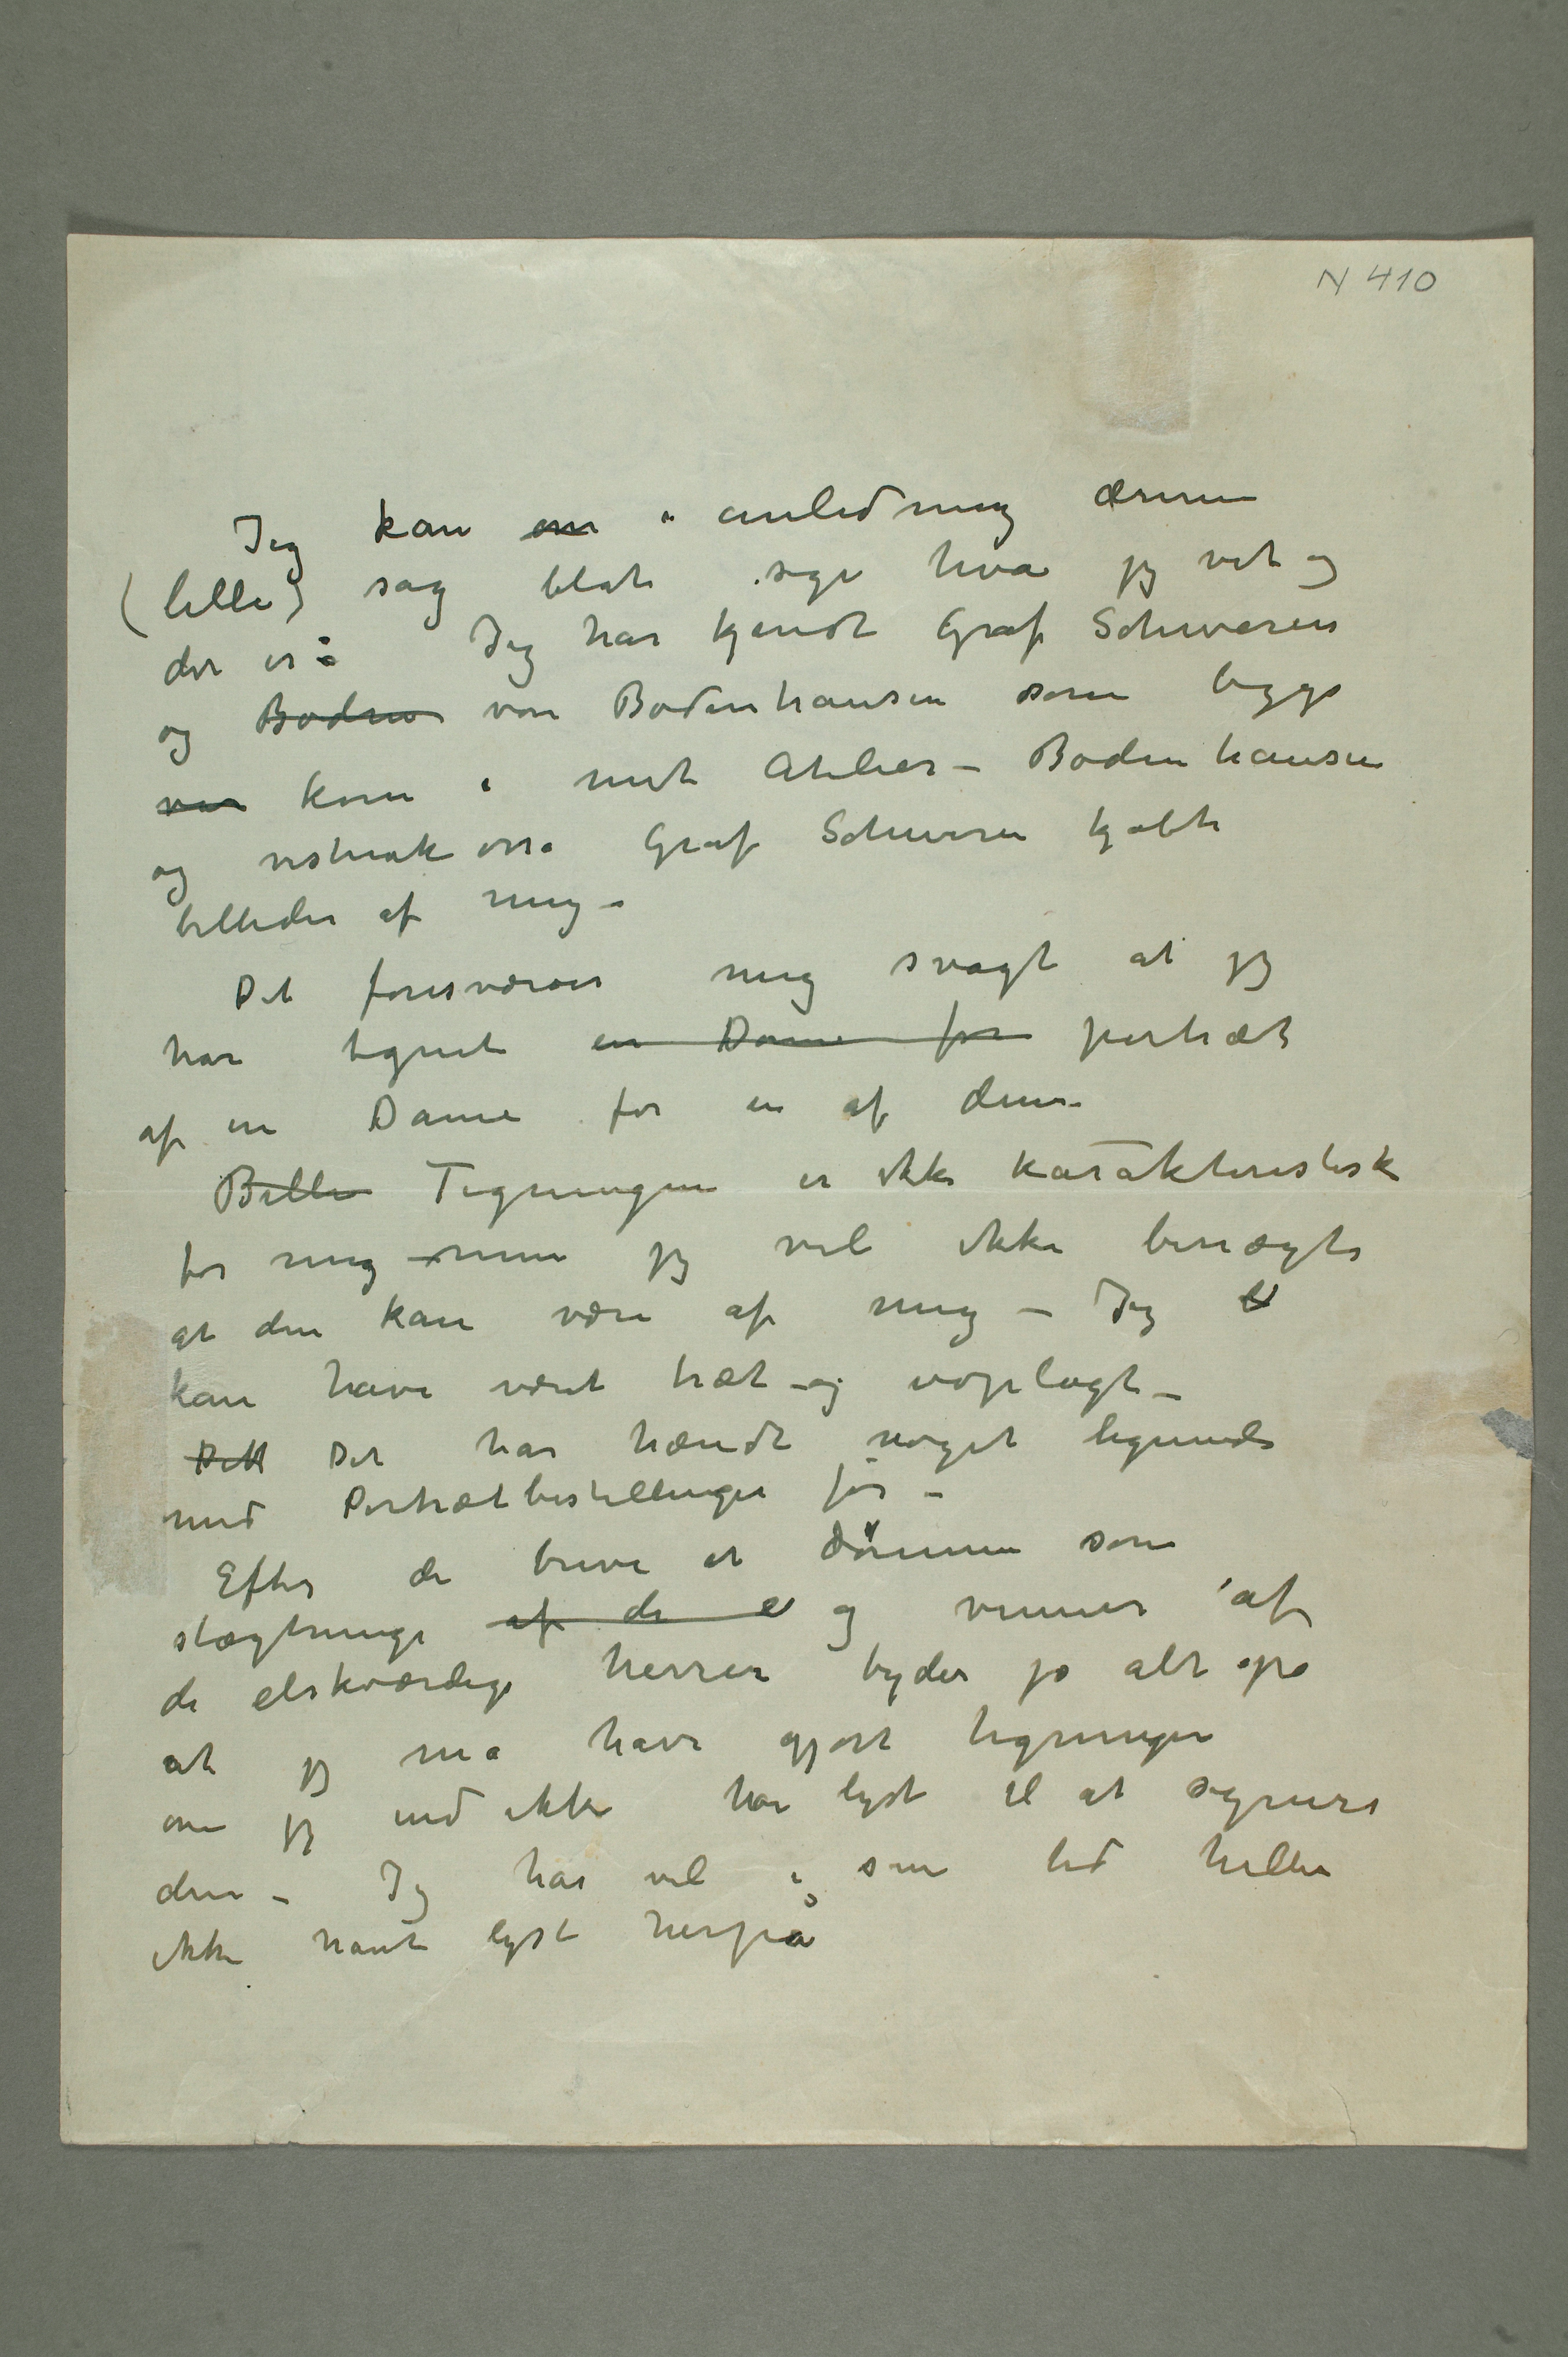 N 410
Jeg kan om i anledning denne
(lille) sag blot sige hva jeg vet og
det er: Jeg har kjendt Graf Schweren
og Boden von Bodenhausen som begge
var kom i mit Atelier – Bodenhausen
og vistnok osså Graf Schweren kjøbte
billeder af mig –
Det foresvæver mig svagt at jeg
har tegnet en Dame for portræt
af en Dame for en af dem –
Bille Tegningen er ikke karakteristisk
for mig – men jeg vil ikke benægte
at den kan være af mig – Jeg
kan have været træt og uoplagt –
Dett Det har hændt noget lignende
med Portrætbestillinger før –
Efter de breve at dømme som
slægtninge af de e og venner af
de elskværdige herrer tyder jo alt på
at jeg må have gjort tegningen
om jeg end ikke har lyst til at signere
den – Jeg har vel i sin tid heller
ikke havt lyst herpå